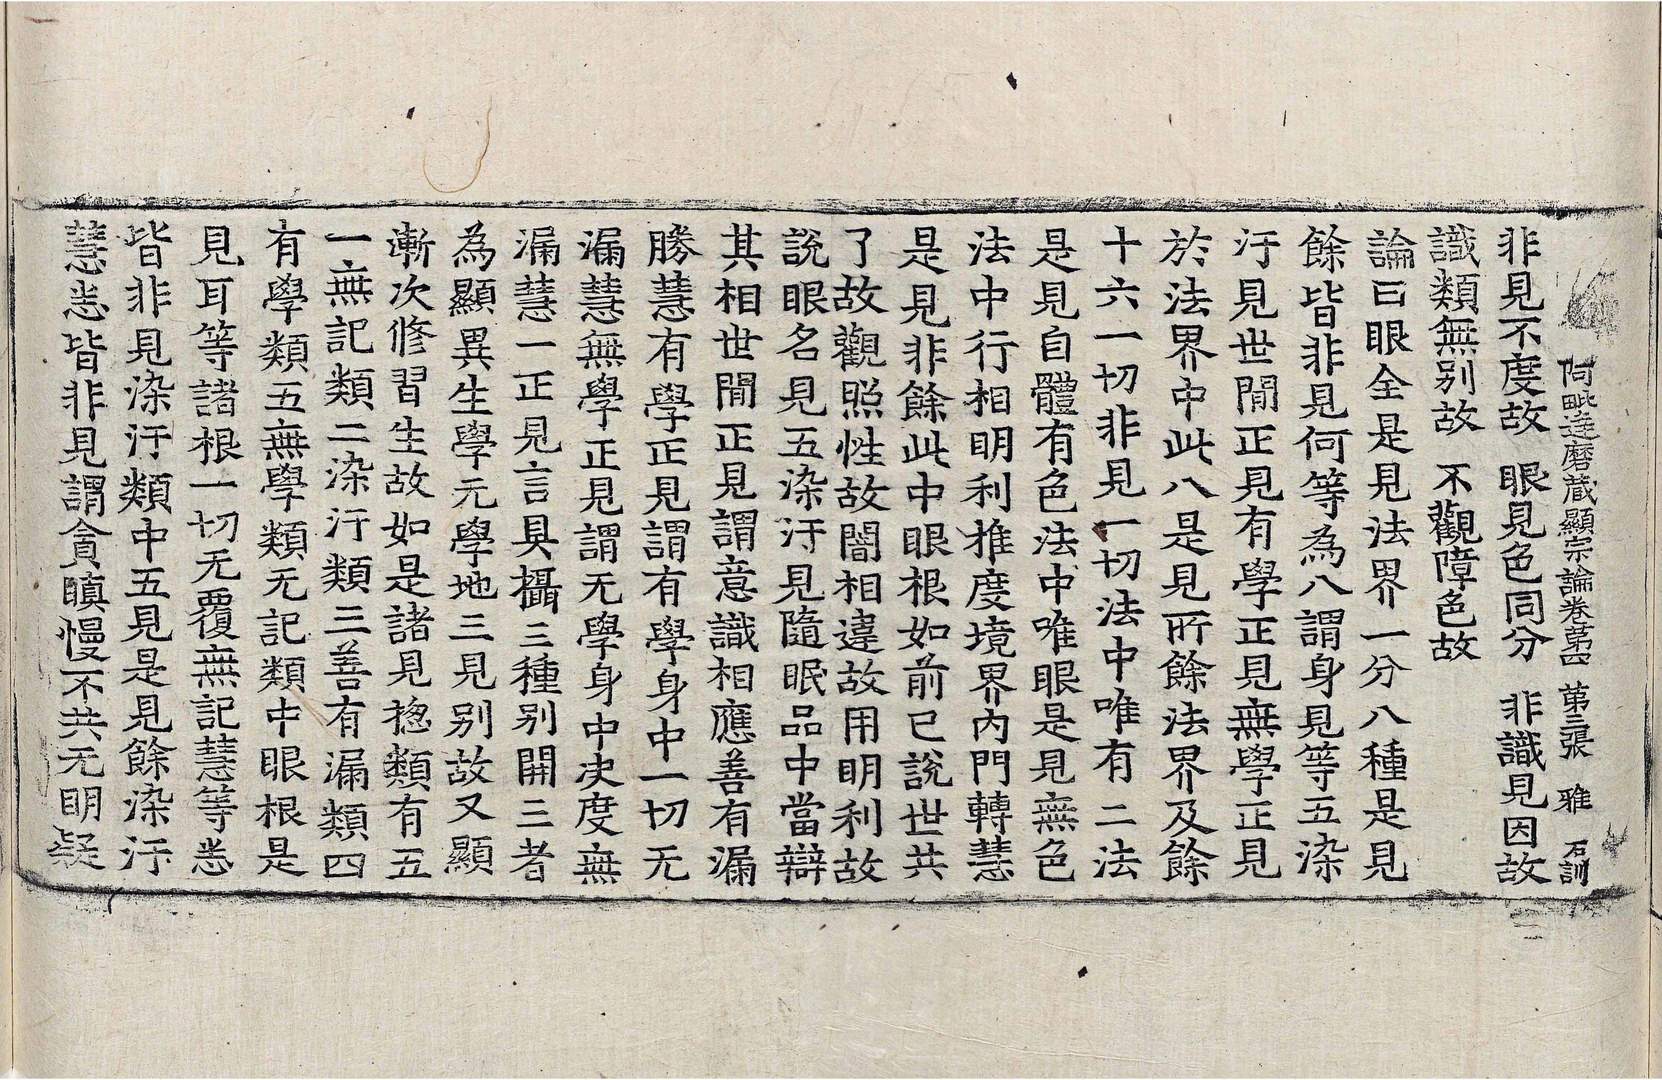 阿毗達磨藏顯宗論卷第四 第三張 雅 石訓
非見不度故 眼見色同分 非識見因故
識類無別故 不觀障色故
論曰眼全是見法界一分八種是見
餘皆非見何等為八謂身見等五染
汙見世閒正見有學正見無學正見
於法界中此八是見所餘法界及餘
十六一切非見一切法中唯有二法
是見自體有色法中唯眼是見無色
法中行相明利推度境界內門轉慧
是見非餘此中眼根如前已說世共
了故觀照性故闇相違故用明利故
說眼名見五染汙見隨眠品中當辯
其相世閒正見謂意識相應善有漏
勝慧有學正見謂有學身中一切无
漏慧無學正見謂无學身中決度無
漏慧一正見言具攝三種別開三者
為顯異生學无學地三見別故又顯
漸次修習生故如是諸見揔類有五
一無記類二染汙類三善有漏類四
有學類五無學類无記類中眼根是
見耳等諸根一切无覆無記慧等悉
皆非見染汙類中五見是見餘染汙
慧悉皆非見謂貪瞋慢不共无明疑